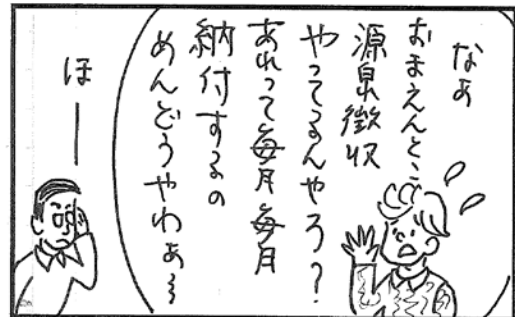 なぁ
おまえんとこ
源泉徴収
やってるんやろ?
あれって毎月毎月
納付するの
めんどうやわぁ~
ほ――